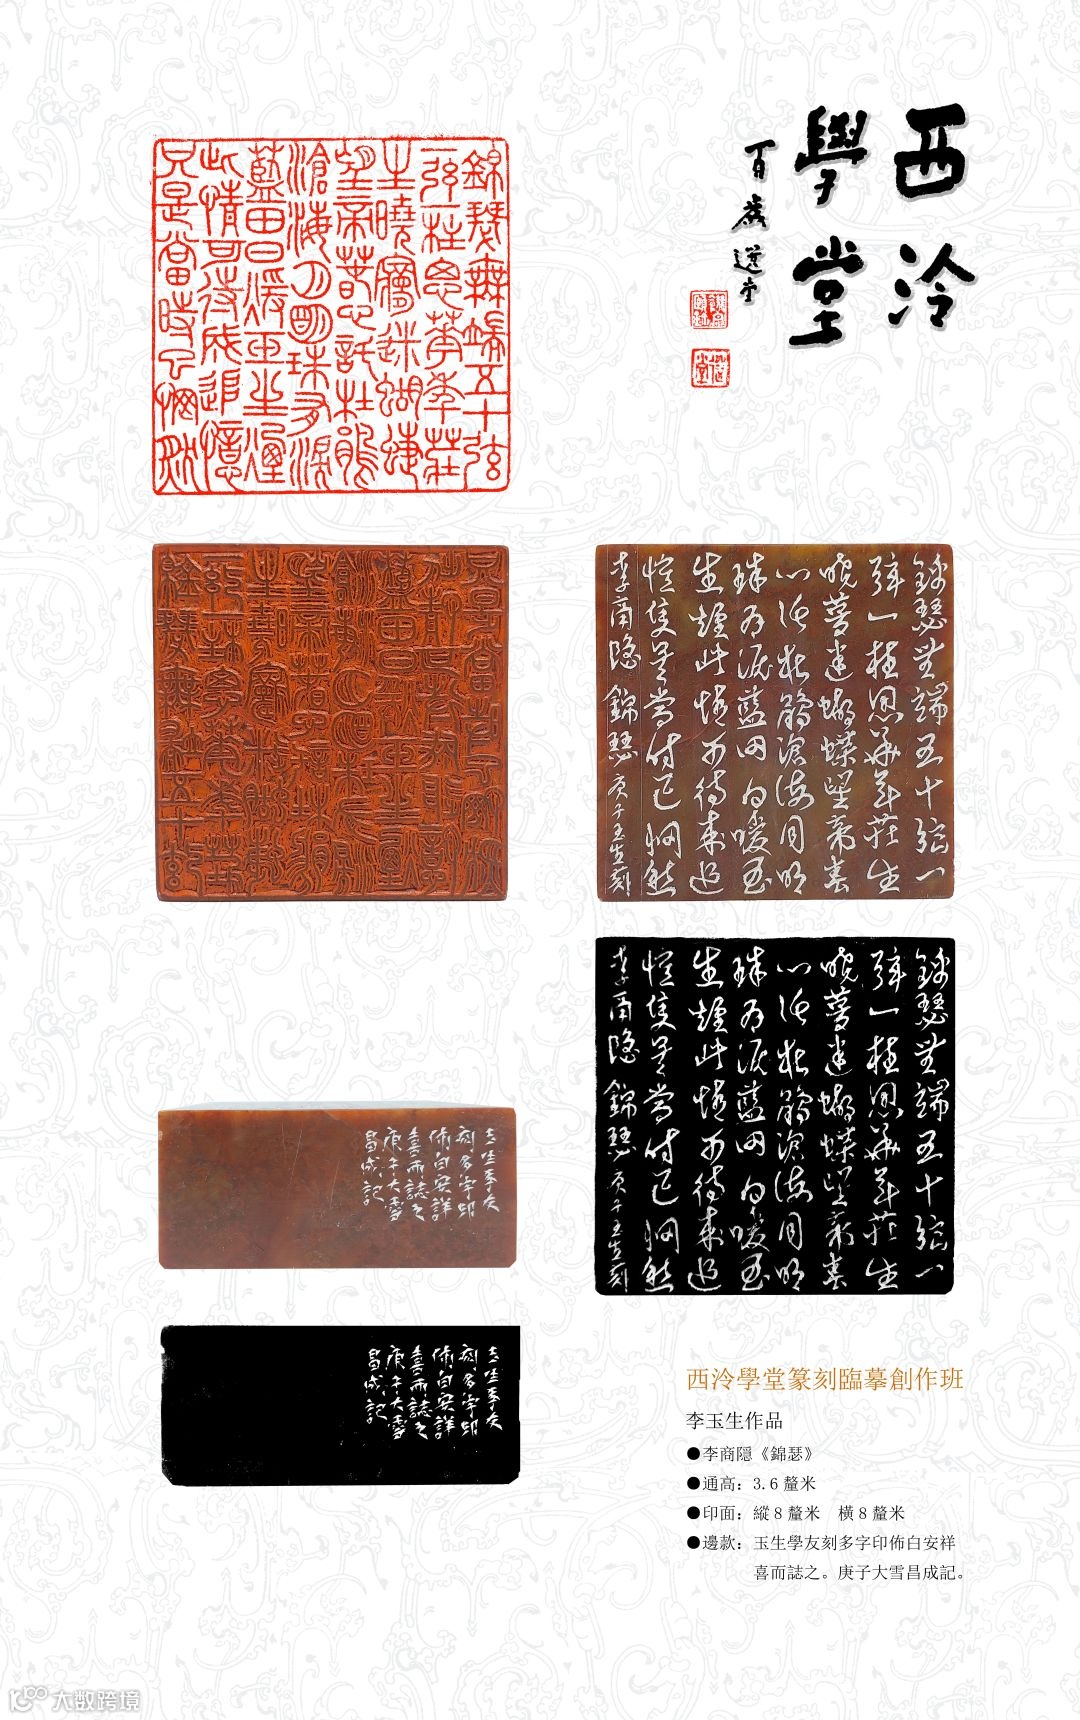 西泠
學堂
百歲選堂
錦瑟無端五十弦
一弦一柱思華年莊
生曉夢迷蝴蝶
望帝春心託杜鵑
滄海月明珠有淚
藍田日暖玉生煙
此情可待成追憶
只是當時已惘然
錦瑟無端五十弦一
弦一柱思華年莊生
曉夢迷蝴蝶望帝春
心託杜鵑滄海月明
珠有淚藍田日暖玉
生煙此情可待成追
憶隻是當時已惘然
李商隱錦瑟 庚子玉生刻
錦瑟無端五十弦一
弦一柱思華年莊生
曉夢迷蝴蝶望帝春
心託杜鵑滄海月明
珠有淚藍田日暖玉
生煙此情可待成追
憶隻是當時已惘然
李商隱錦瑟 庚子玉生刻
玉生學友
刻多字印
佈白安詳
喜而誌之
庚子大雪
昌成記
玉生學友
刻多字印
佈白安詳
喜而誌之
庚子大雪
昌成記
西泠學堂篆刻臨摹創作班
李玉生作品
●李商隱《錦瑟》
●通高：3.6釐米
●印面：縱8釐米 橫8釐米
●邊款：玉生學友刻多字印佈白安祥
喜而誌之。庚子大雪昌成記。
大数跨境